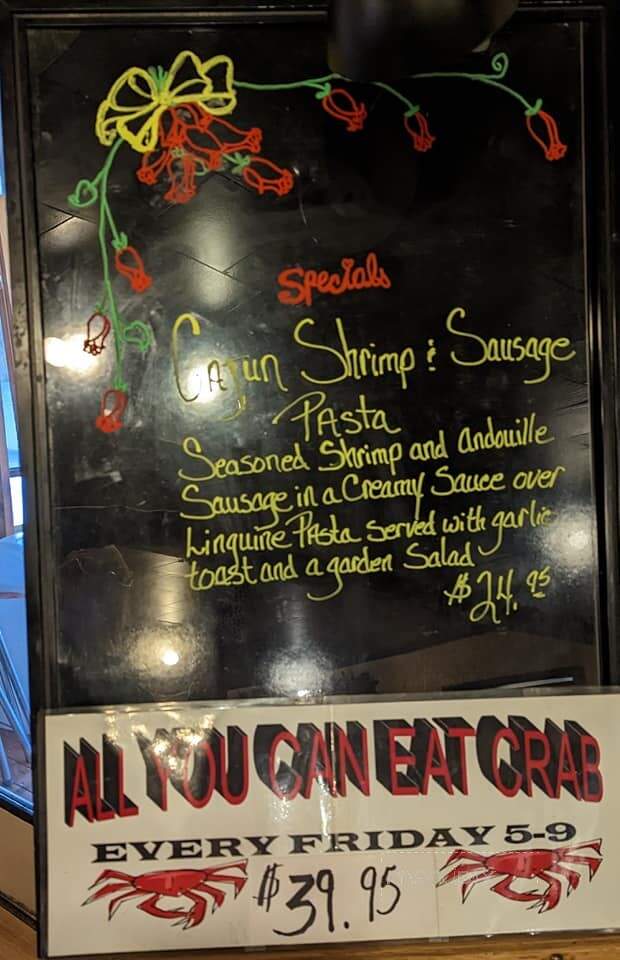 Specials
Cajun Shrimp & Sausage
Pasta
Seasoned Shrimp and Andouille
Sausage in a Creamy Sauce over
Linguine Pasta Served with garlic
toast and a garden Salad
$24.95
ALL YOU CAN EAT CRAB
EVERY FRIDAY 5-9
$39.95